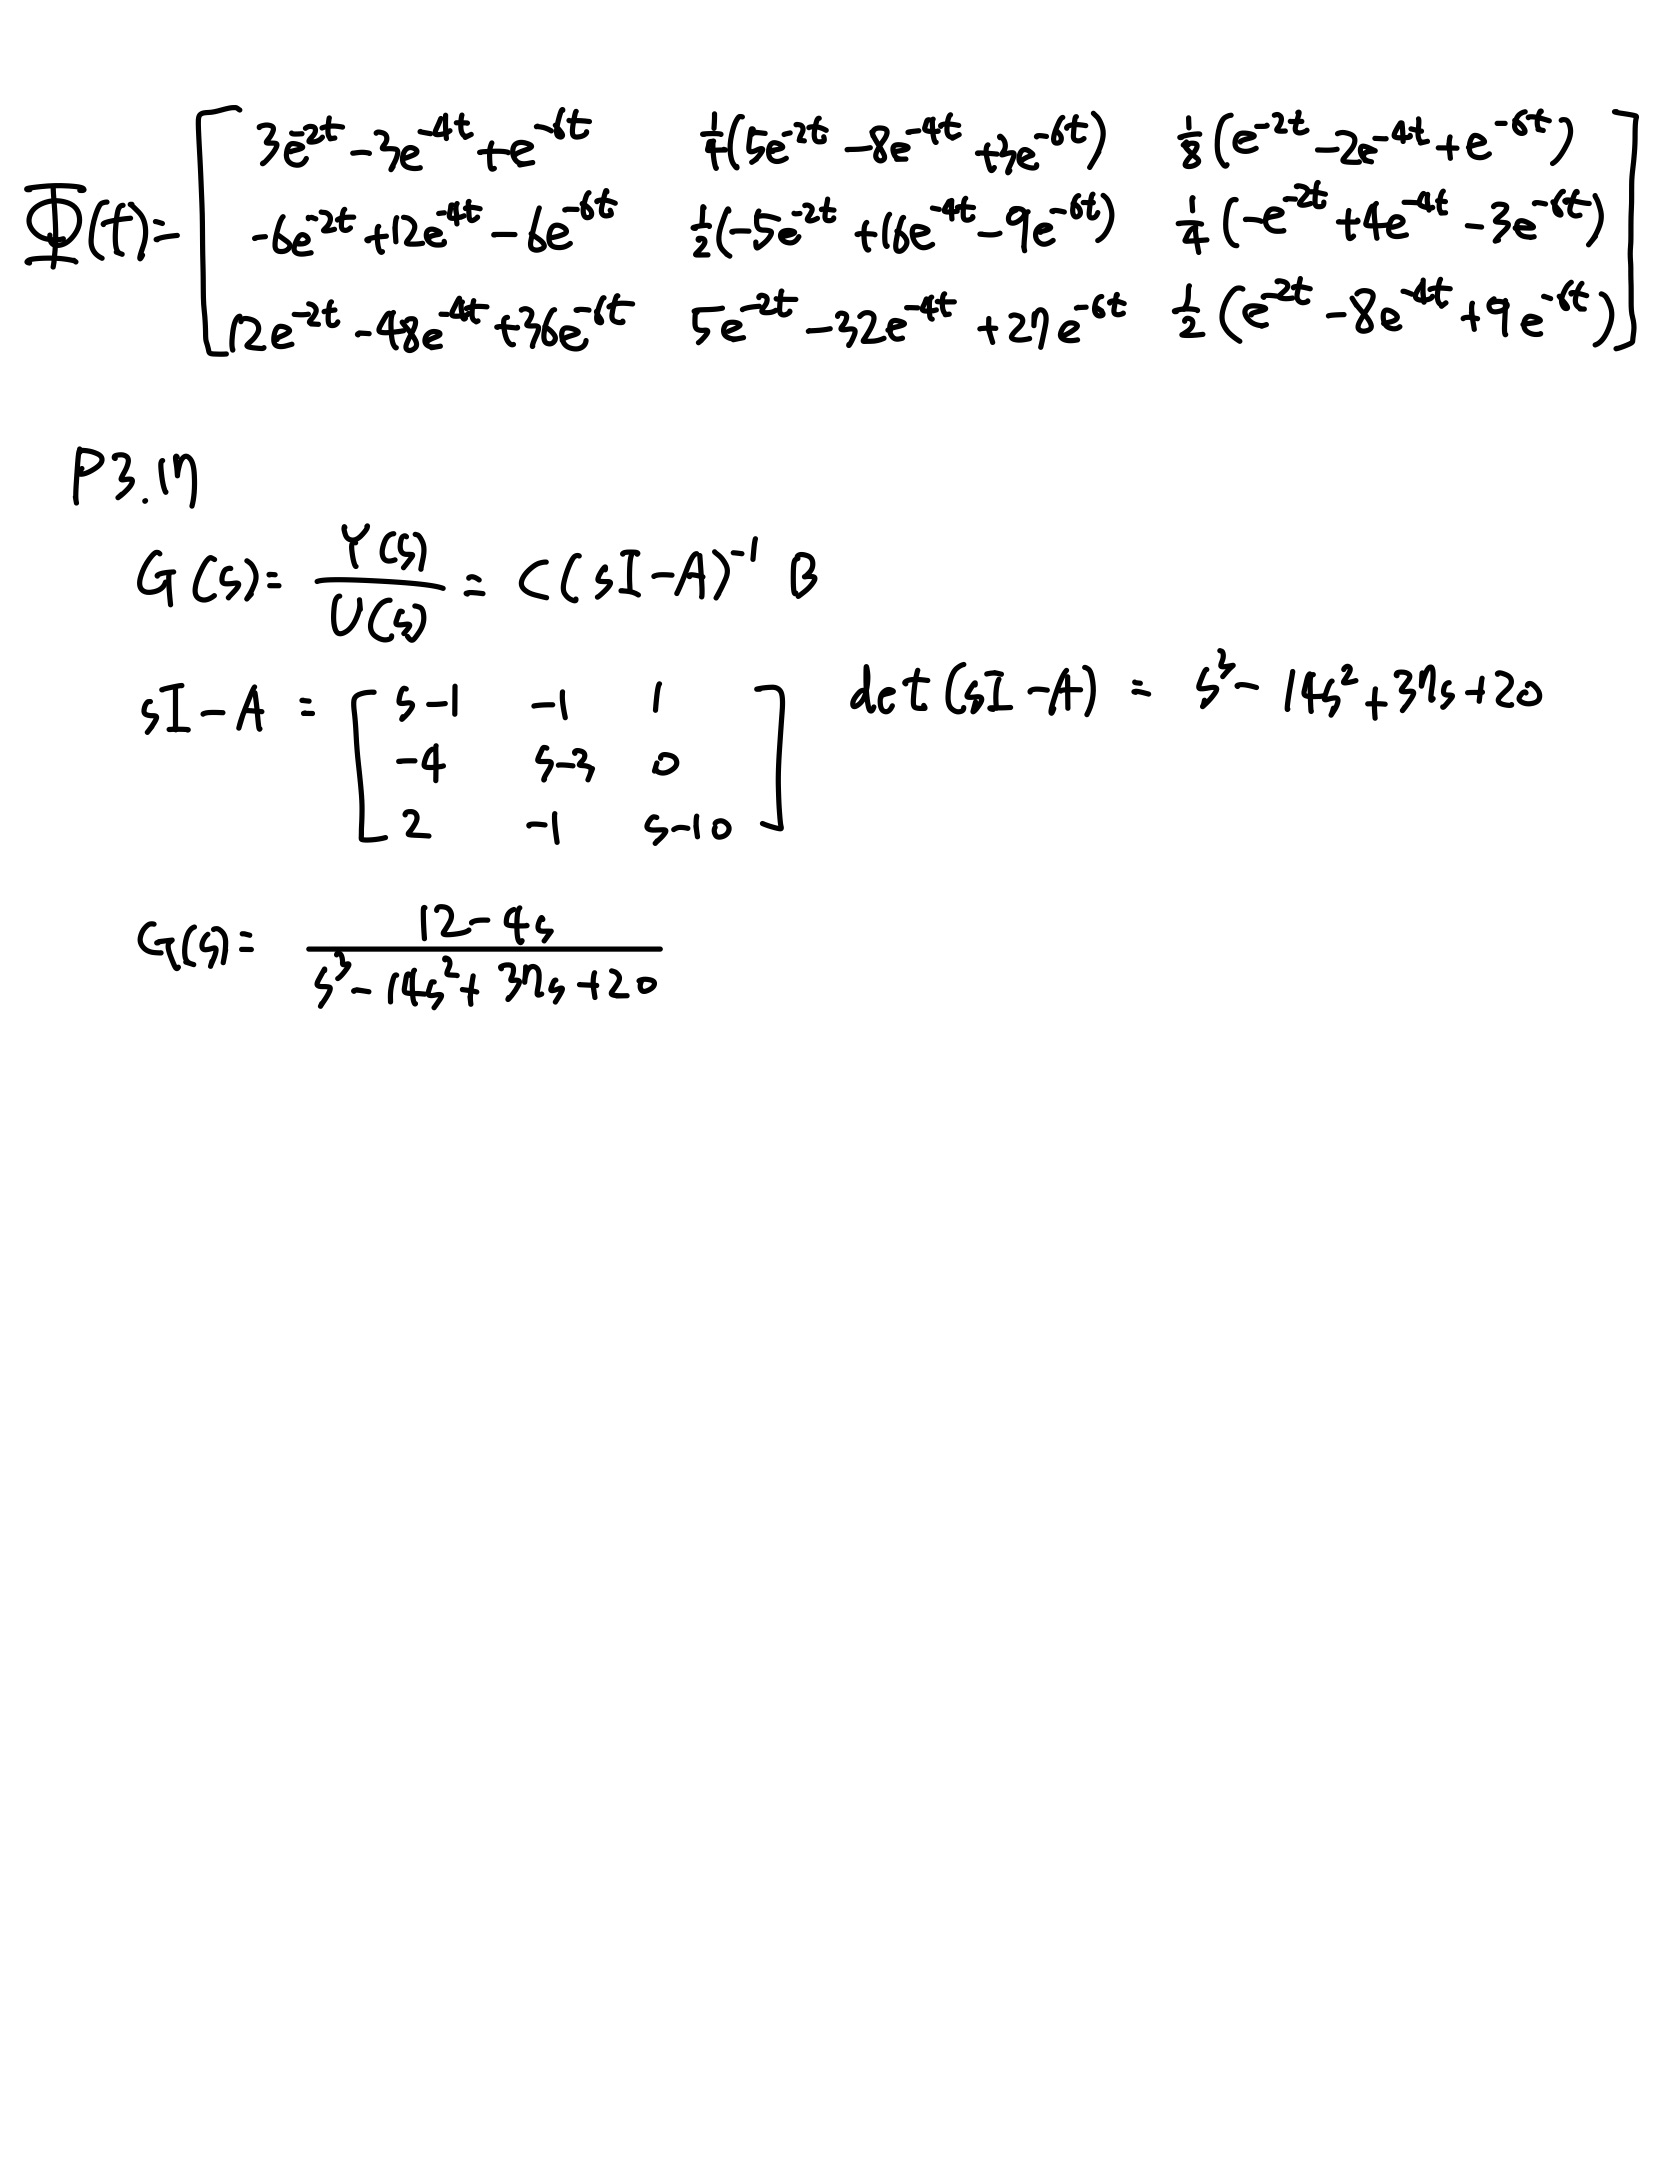 Φ(t)= [ 3e^{-2t} -3e^{-4t} +e^{-6t}   1/4(5e^{-2t} -8e^{-4t} +3e^{-6t})   1/8(e^{-2t} -2e^{-4t} +e^{-6t})
-6e^{-2t} +12e^{-4t} -6e^{-6t}   1/2(-5e^{-2t} +16e^{-4t} -9e^{-6t})   1/4(-e^{-2t} +4e^{-4t} -3e^{-6t})
12e^{-2t} -48e^{-4t} +36e^{-6t}   5e^{-2t} -32e^{-4t} +27e^{-6t}   1/2(e^{-2t} -8e^{-4t} +9e^{-6t}) ]
P3.17
G(s)= Y(s)/U(s) = C(sI-A)^{-1} B
sI-A = [ s-1   -1   1
-4   s-3   0
2   -1   s-10 ]
det(sI-A) = s^3 - 14s^2 + 37s + 20
G(s)= (12-4s)/(s^3 - 14s^2 + 37s + 20)